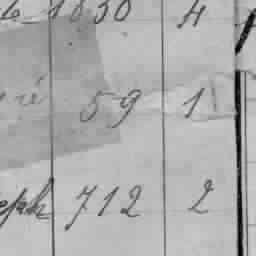 1830 4
ré 59 1
eph 712 2